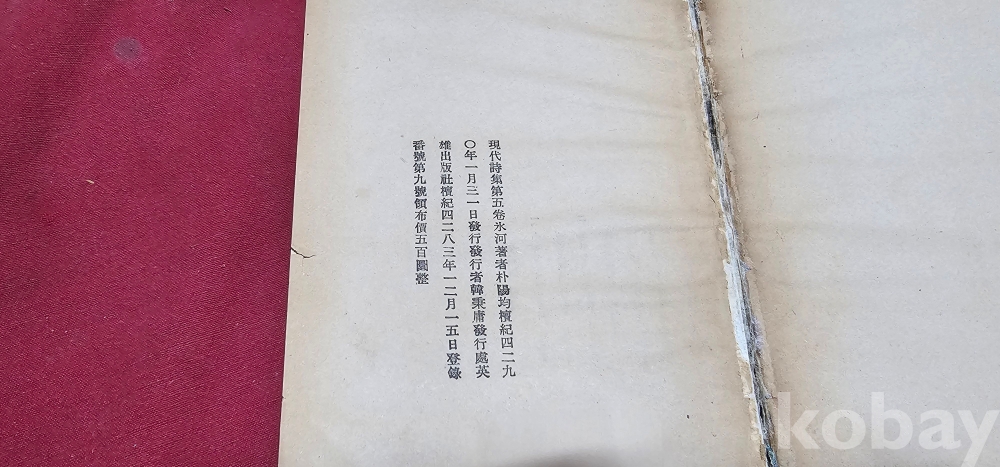 現代詩集第五卷氷河著者朴陽均檀紀四二九
〇年一月三一日發行發行者韓秉庸發行處英
雄出版社檀紀四二八三年一二月一五日登錄
番號第九號領布價五百圜整
kobay